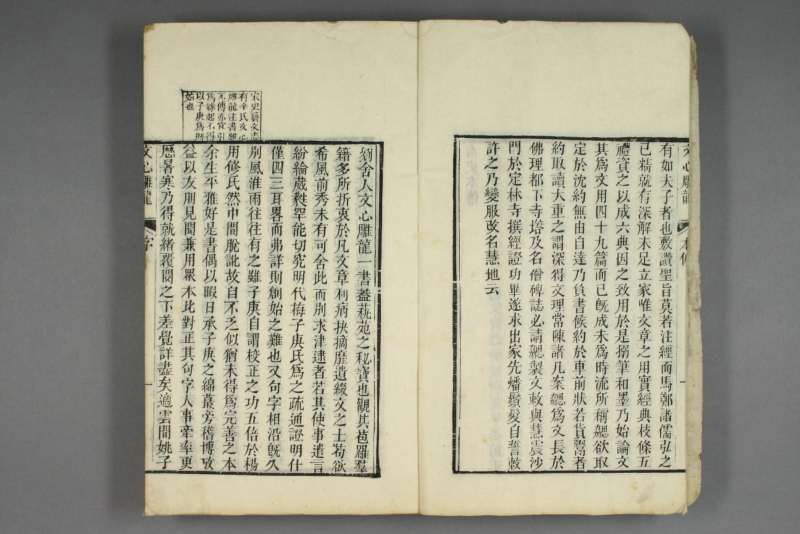 文心雕龍
本傳
一
有如夫子者也敷讚聖旨莫若注經而馬鄭諸儒弘之
已精就有深解未足立家唯文章之用實經典枝條五
禮資之以成六典因之致用於是搦筆和墨乃始論文
其爲文用四十九篇而已旣成未爲時流所稱勰欲取
定於沈約無由自達乃負書候約於車前狀若貨鬻者
約取讀大重之謂深得文理常陳諸几案勰爲文長於
佛理都下寺塔及名僧碑誌必請勰製文敕與慧震沙
門於定林寺撰經證功畢遂求出家先燔鬚髮自誓敕
許之乃變服改名慧地云
宋史藝文志
有辛氏處信
雕龍注書
爲
以子庚爲
始也
劉舍人文心雕龍一書蓋藝苑之秘寶也觀其苞羅羣
籍多所折衷於凡文章利病抉摘靡遺綴文之士苟欲
希風前秀未有可舍此而別求津逮者若其使事遣言
紛綸葳蕤罕能切究明代梅子庚氏爲之疏通證明什
僅四三耳畧而弗詳則創始之難也又句字相沿旣久
別風淮雨往往有之雖子庚自謂校正之功五倍於楊
用修氏然中間脫訛故自不乏似猶未得爲完善之本
余生平雅好是書偶以暇日承子庚之綿蕞旁稽博攷
益以友朋見聞兼用眾本比對正其句字人事牽率更
歷暑寒乃得就緒覆閱之下差覺詳盡矣適雲間姚子
文心雕龍
序
一